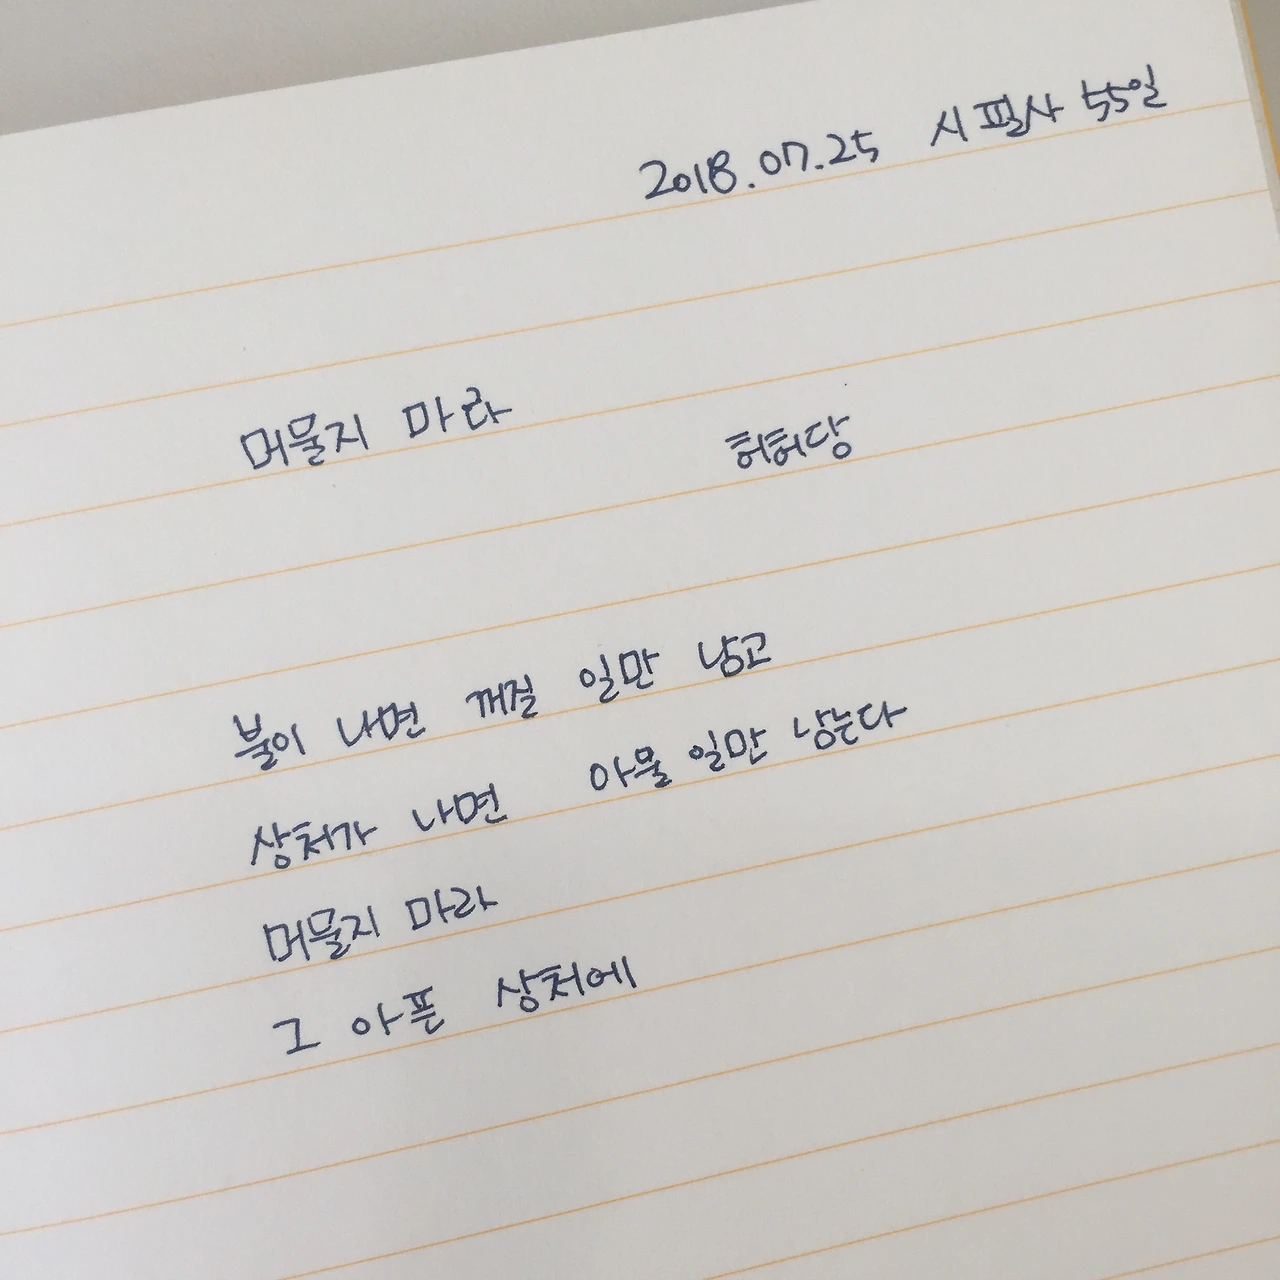 2018.07.25 시필사 55일
머물지 마라 허허당
불이 나면 꺼질 일만 남고
상처가 나면 아물 일만 남는다
머물지 마라
그 아픈 상처에